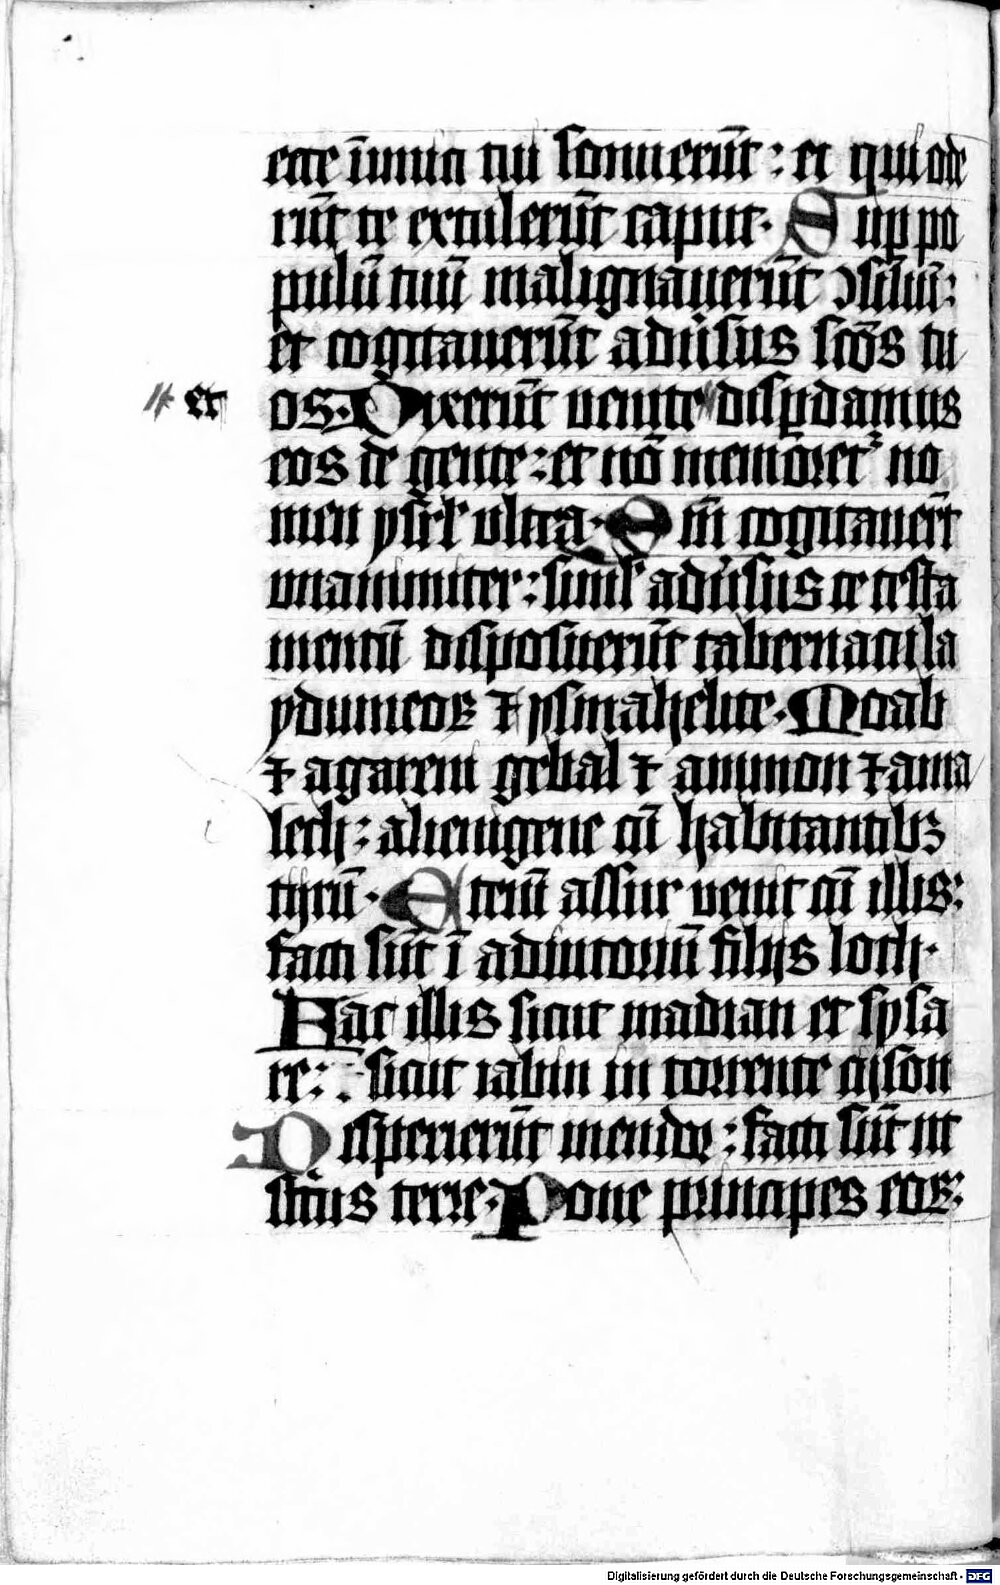 ecce īimici tui sonuerūt : et qui ode
rūt te extulerūt caput · Sup po
pulū tuū maligauerūt ↄsiliū :
et cogitauerūt aduˀsus scōs tu
et os · Dixerūt venite disꝑdamus
eos de gente : et nō memoret᷑ no
men ysrl̓ ultra · Qm̄ cogitauerūt
unanimiter : simul̓ aduˀsus te testa
mentū disposuerūt tabernacula
ydumeoꝝ ⁊ ysmahelite · Moab
⁊ agareni gebal ⁊ ammon ⁊ ama
lech : alienigene cū habitantibꝫ
tyrū · Eteni assur venit cū illis :
facti sūt ī adiutoriū filijs loth ·
Fac illis sicut madian et sysa
re : sicut iabin in torrente cison
Disperierūt in endor : facti sūt ut
stercus terre · Pone principes eoꝝ :
Digitalisierung gefördert durch die Deutsche Forschungsgemeinschaft - DFG